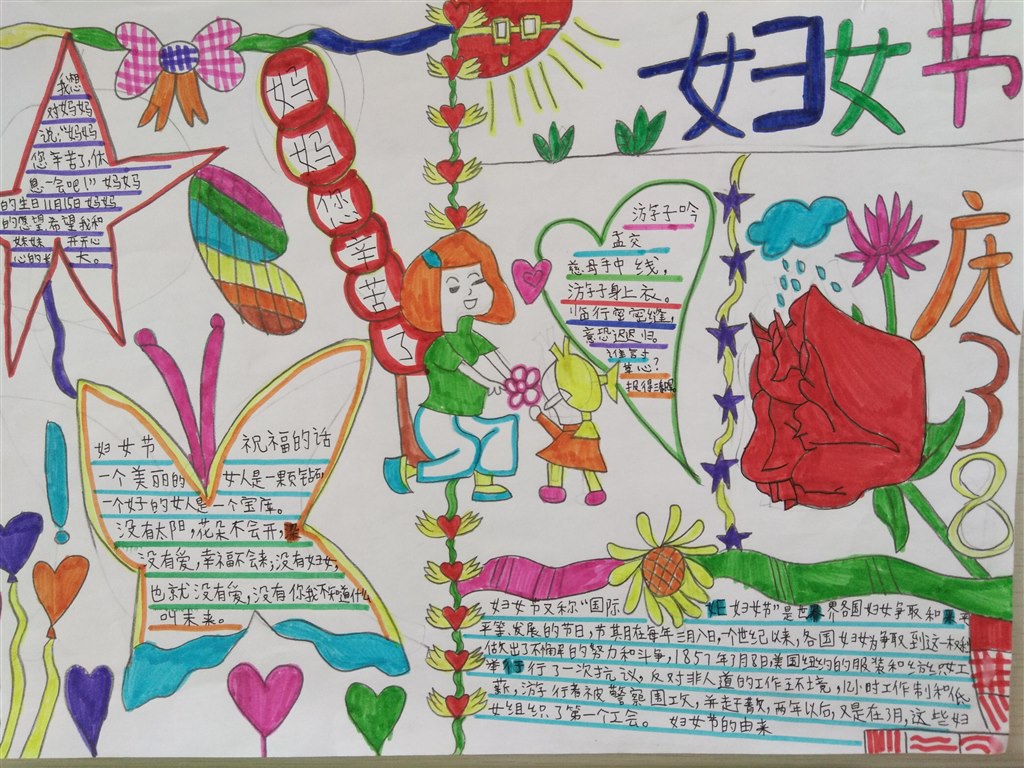 妇女节
庆38
妈妈您辛苦了
我想
对妈妈
说:“妈妈
您辛苦了,休
息一会吧!”妈妈
的生日11月15日妈妈
的愿望希望我和
妹妹 开开心
心的长大。
游子吟
孟交
慈母手中线,
游子身上衣。
临行密密缝,
意恐迟迟归。
谁言寸
草心?
报得三春晖。
妇女节 祝福的话
一个美丽的 女人是一颗钻
一个好的女人是一个宝库。
没有太阳,花朵不会开;
没有爱,幸福不会来;没有妇女,
也就没有爱,没有你我不知道什么
叫未来。
妇女节又称“国际 妇女节”是世界各国妇女争取和
平等、发展的节日,节其月在每年三月八日,一个世纪以来,各国妇女为争取到这一权利
做出了不懈的努力和斗争,1857年3月8日,美国纽约的服装和纺织女工
举行了一次抗议,反对非人道的工作环境,12小时工作制和低
薪,游行者被警察围攻,并赶散,两年以后,又是在3月,这些妇
女组织了第一个工会。 妇女节的由来